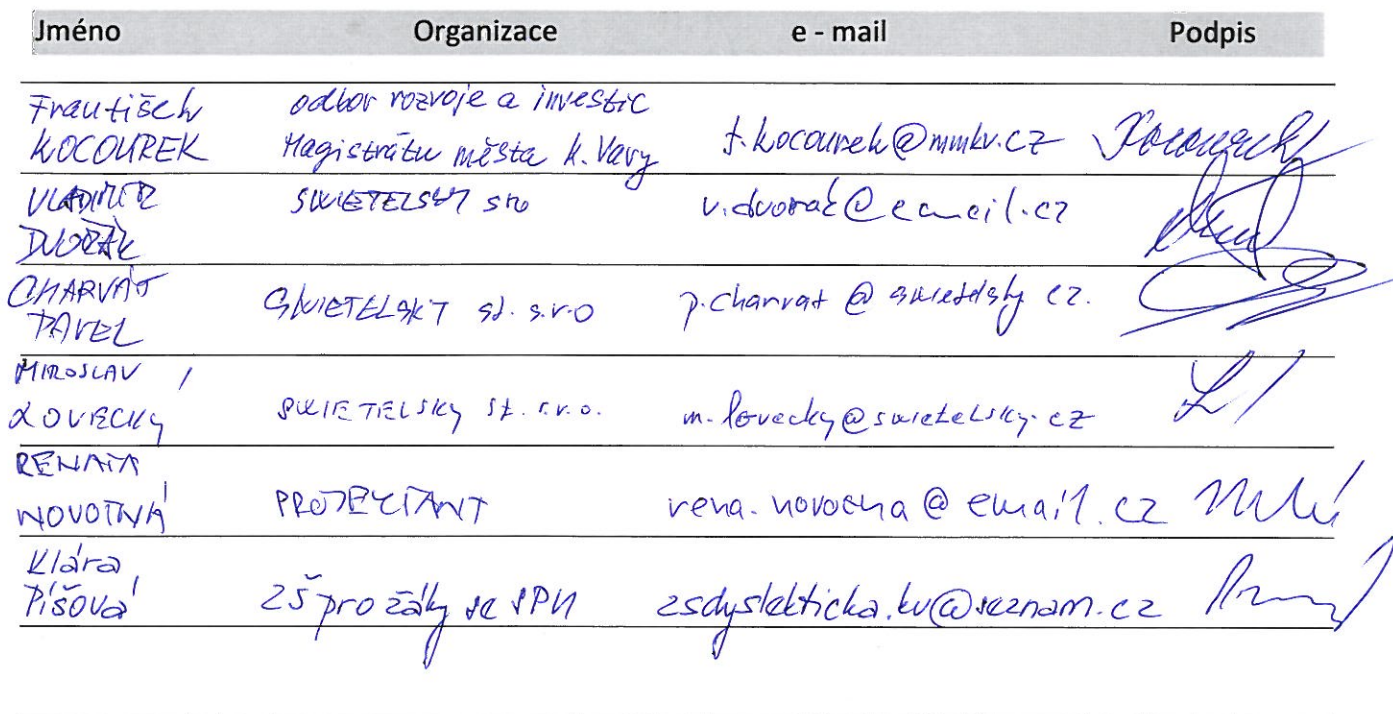 Jméno Organizace e - mail Podpis
František odbor rozvoje a investic
KOCOUREK Magistrátu města K. Vary f.kocourek@mmkv.cz
VLADIMÍR SWIETELSKÝ sro v.dvorak@email.cz
DVOŘÁK
CHARVÁT
PAVEL SWIETELSKÝ st. s.r.o p.charvat @ swietelsky cz.
MIROSLAV
LOVECKÝ SWIETELSKY st. s.r.o. m.lovecky@swietelsky.cz
RENATA
NOVOTNÁ PROJEKTANT rena.novotna @ email.cz
Klára
Píšová ZŠ pro žáky se SPU zsdyslekticka.kv@seznam.cz